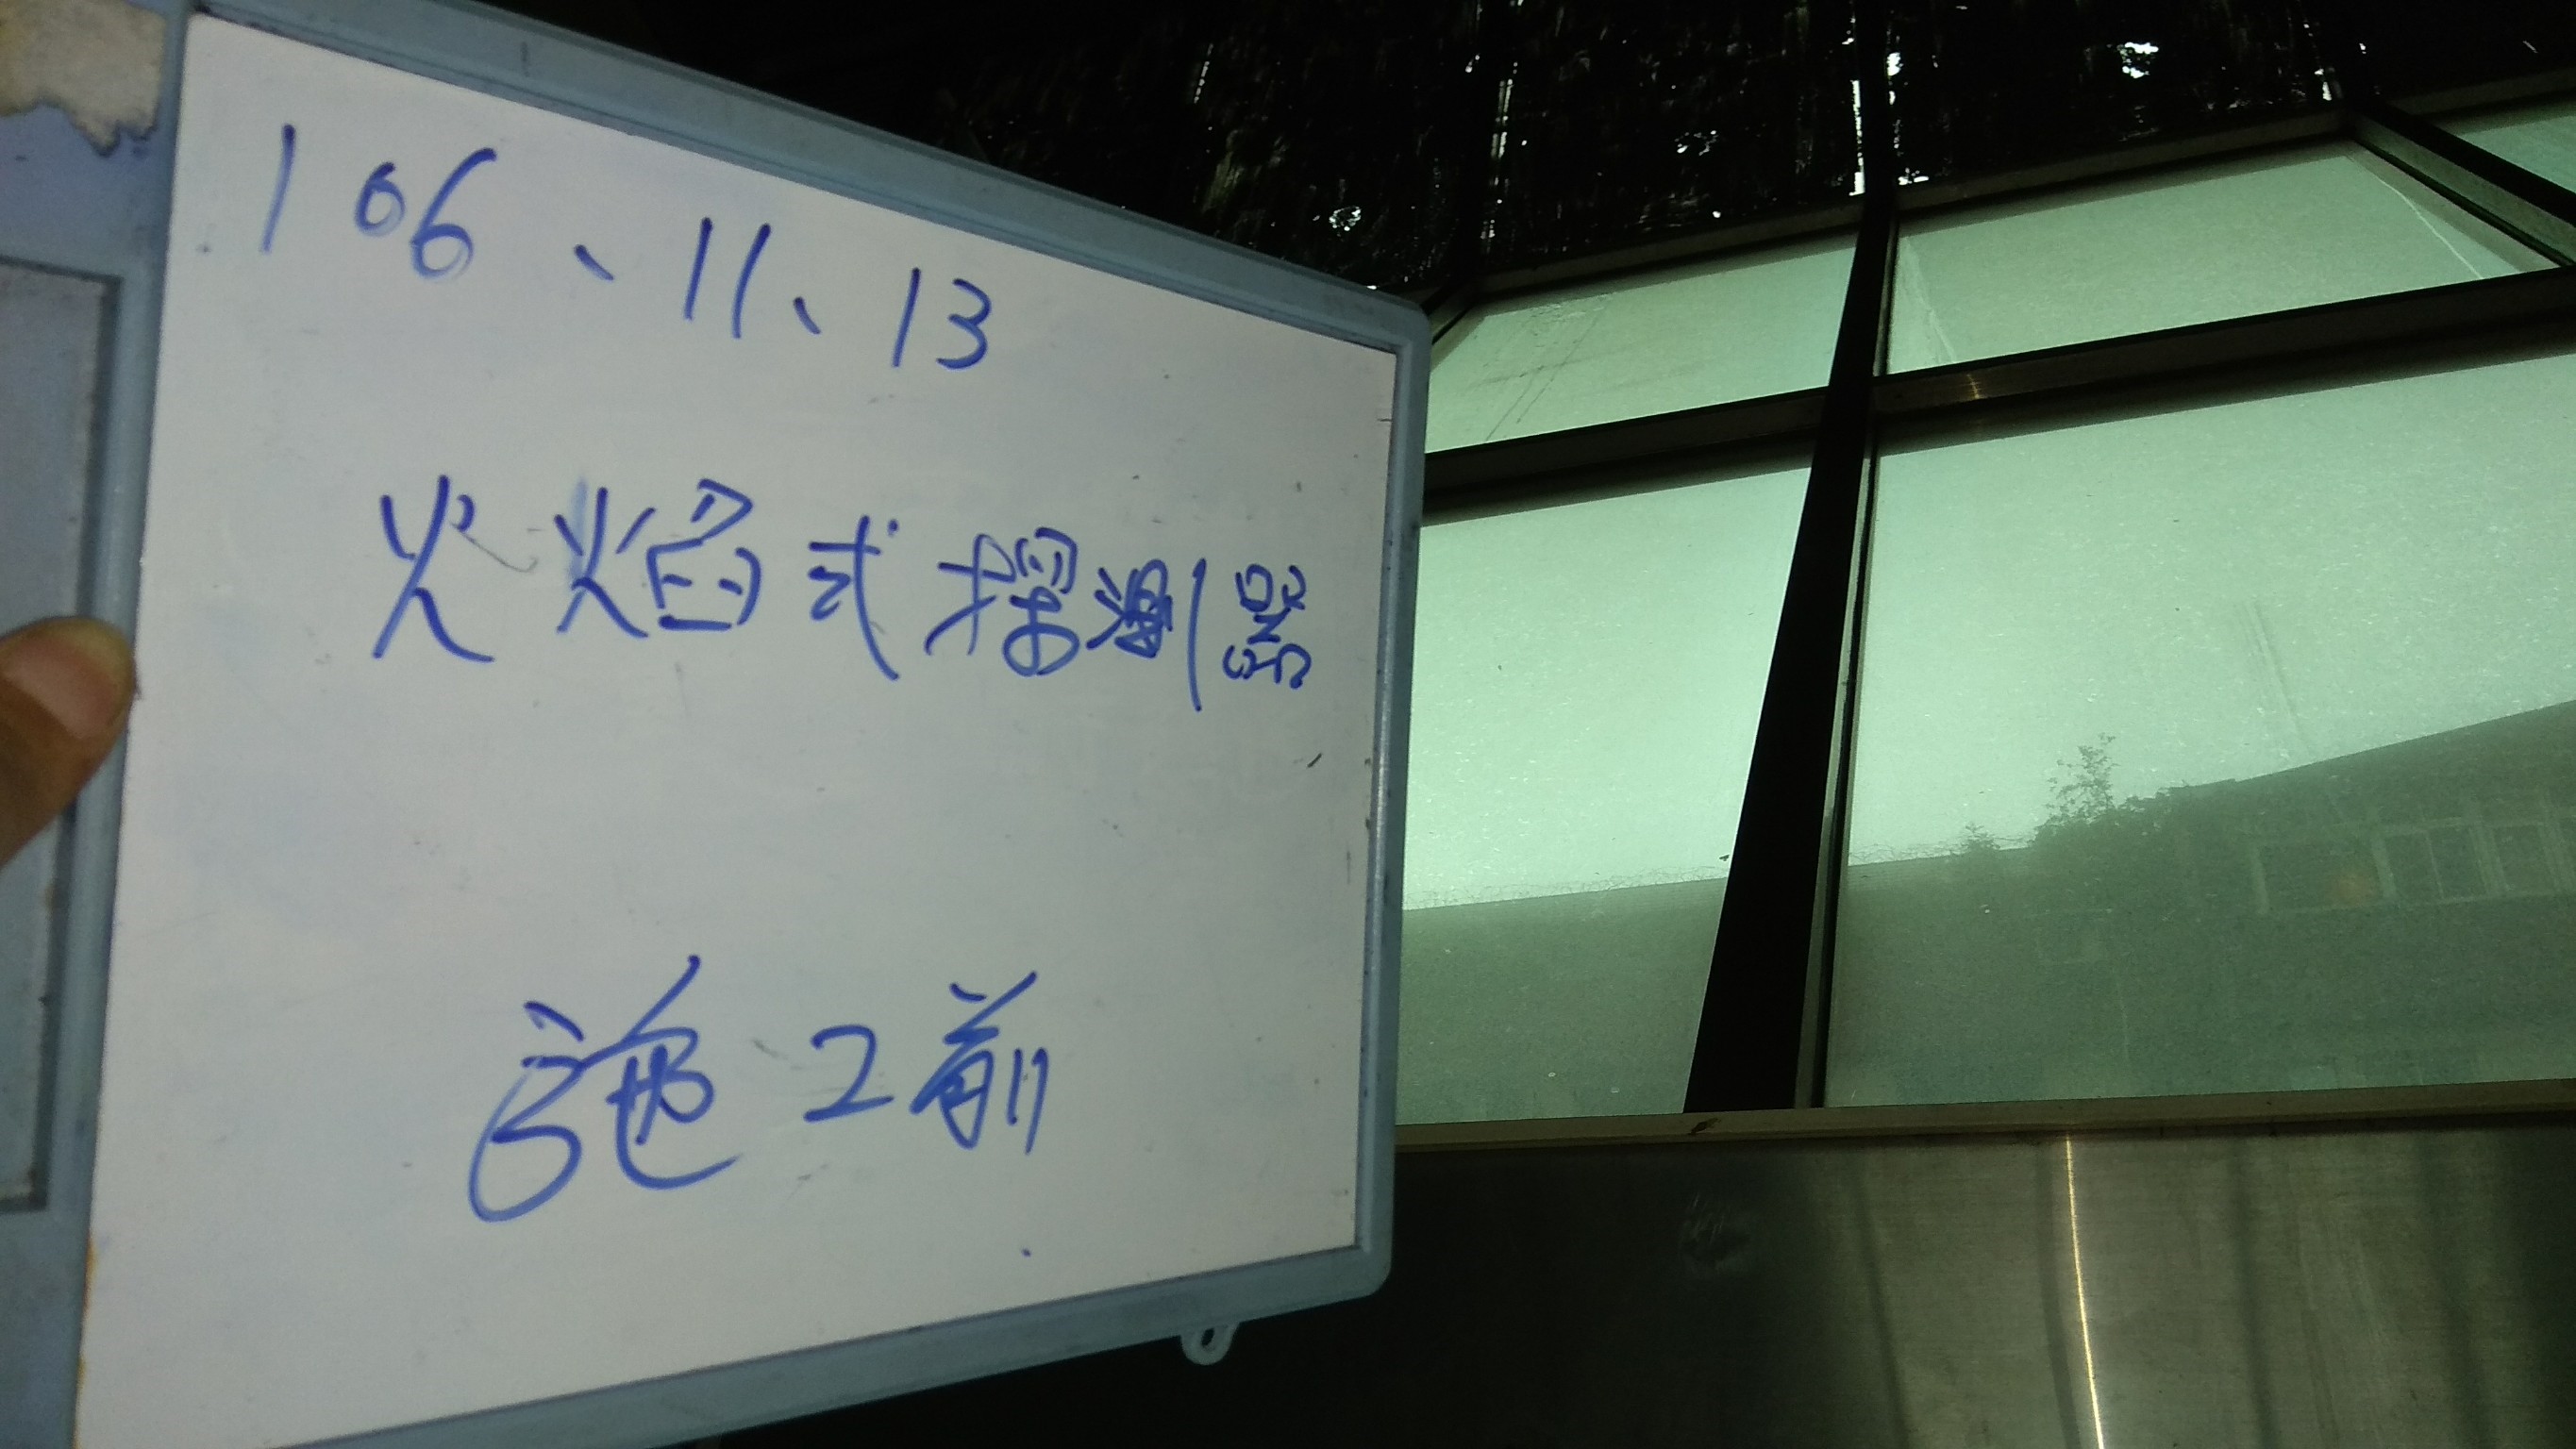 106、11、13
火焰式探測器
施工前